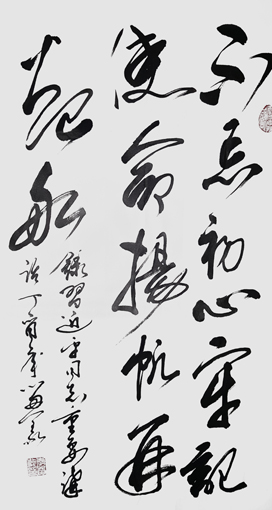 不忘初心牢記
使命揚帆再
起航
錄習近平同志重要講
話丁酉年